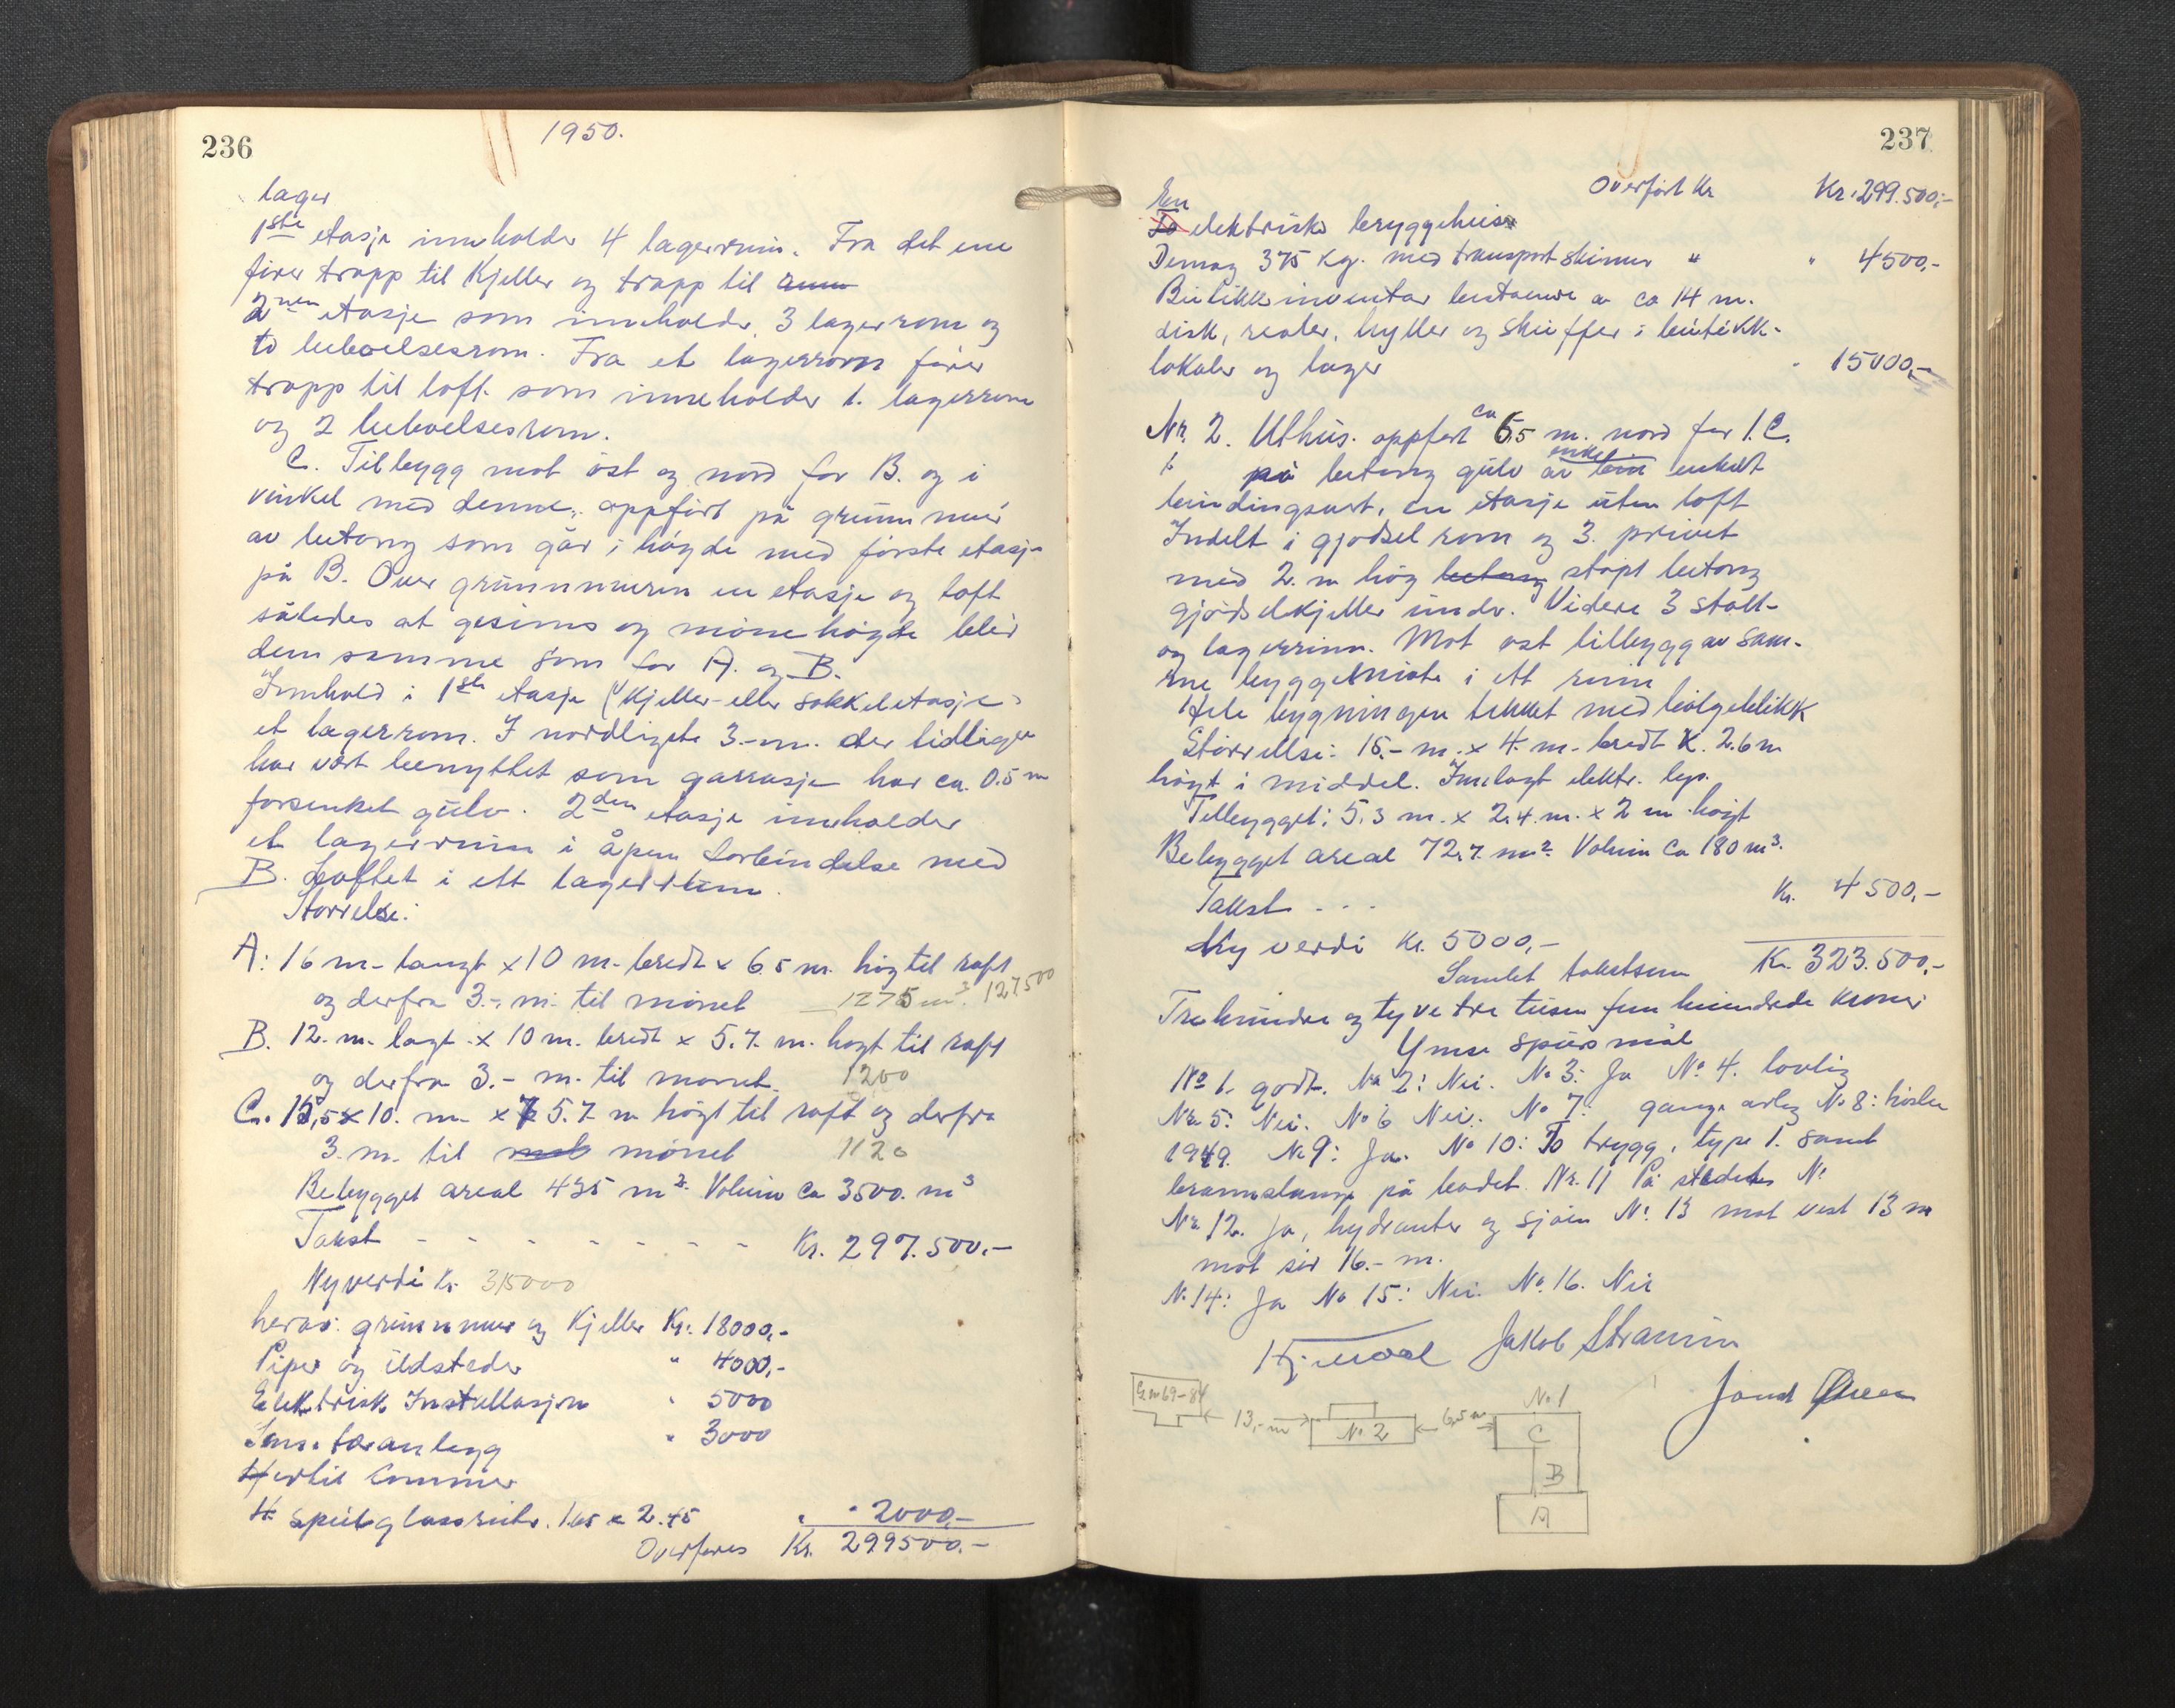 236
1950.
lager
1ste etasje inneholder 4 lagerrum. Fra det ene
fører trapp til Kjeller og trapp til
2nen etasje som inneholder 3 lagerrom og
to beboelsesrom. Fra et lagerrom fører
trapp til loft. som inneholder 1. lagerrom
og 2 beboelsesrom.
C. Tilbygg mot øst og nord for B. og i
vinkel med denne, oppført på grunnmur
av betong som går i høyde med første etasje
på B. Over grunnmuren en etasje og loft
således at gesims og mønehøyde blir
den samme som for A. og B.
Innhold i 1ste etasje (Kjeller- eller sokkeletasje)
et lagerrom. I nordligste 3.-m. der tidligere
har vært benyttet som garrasje har ca. 0.5 m
forsenket gulv. 2den etasje inneholder
et lagerrum i åpen forbindelse med
B. Loftet i ett lagerrum.
Størrelse:
A: 16 m- langt x 10 m- bredt x 6.5 m. høg til raft
og derfra 3.- m. til mønet 1275 m3. 127.500
B. 12. m. lagt x 10 m. bredt x 5.7. m. høgt til raft
og derfra 3.- m. til mønet. 1200
C. 15,5 x 10. m. x 5.7 m høgt til raft og derfra
3. m. til mønet 1120
Bebygget areal 435 m2. Volum ca 3500. m3
Takst - - - - - - - - Kr. 297.500.-
Nyverdi Kr 315000
herav: grunnmur og Kjeller Kr. 18000,-
Piper og ildsteder " 4000,-
Elektrisk Installasjon " 5000
Sanitæranlegg " 3000
Hertil kommer
4 speilglassruter. 1.65 x 2.45 " 2000,-
Overføres Kr. 299500.-
237
Overført Kr Kr. 299.500,-
En
To elektrisk bryggeheis
Demag 375 Kg. med transportskinner " " 4500,-
Butikkinventar bestaende av ca 14 m.
disk, reoler, hyller og skuffer i butikk-
lokaler og lager " 15000,-
Nr. 2. Uthus. oppført ca 6.5 m. nord for 1.C.
på betong gulv av enkelt
bindingsverk, en etasje uten loft
Indelt i gjødselrom og 3. privet
med 2. m høg betong støpt betong
gjødselkjeller under. Videre 3 stall-
og lagerrum. Mot øst tilbygg av sam-
me byggemåte i ett rum
Hele bygningen tekket med bølgeblikk
Størrelse: 15.- m. x 4. m. bredt x. 2.6 m
høgt i middel. Innlagt elektr. lys.
Tilbygget: 5.3 m. x 2.4. m. x 2 m høgt
Bebygget areal 72.7. m2. Volum ca 180 m3.
Takst - - - Kr. 4500,-
Ny verdi Kr. 5000,-
Samlet takstsum Kr. 323.500,-
Trehundre og tyve tre tusen fem hundrede kroner
Ymse spørsmål
No 1. godt. No 2: Nei. No 3: Ja No 4. lovlig
No 5: Nei. No 6 Nei. No 7: gange årlig No 8: høsten
1949. No 9: Ja. No 10: To trygg, type 1. samt
brannslange på badet. Nr. 11 På stedets No
No 12. Ja, hydranter og sjøen No 13 mot vest 13 m
mot sør 16.- m.
No 14: Ja No 15: Nei. No 16. Nei
Jakob Straumm
Gnr 69-84
13,- m
No 2
6,5 m
No 1
C
B
A